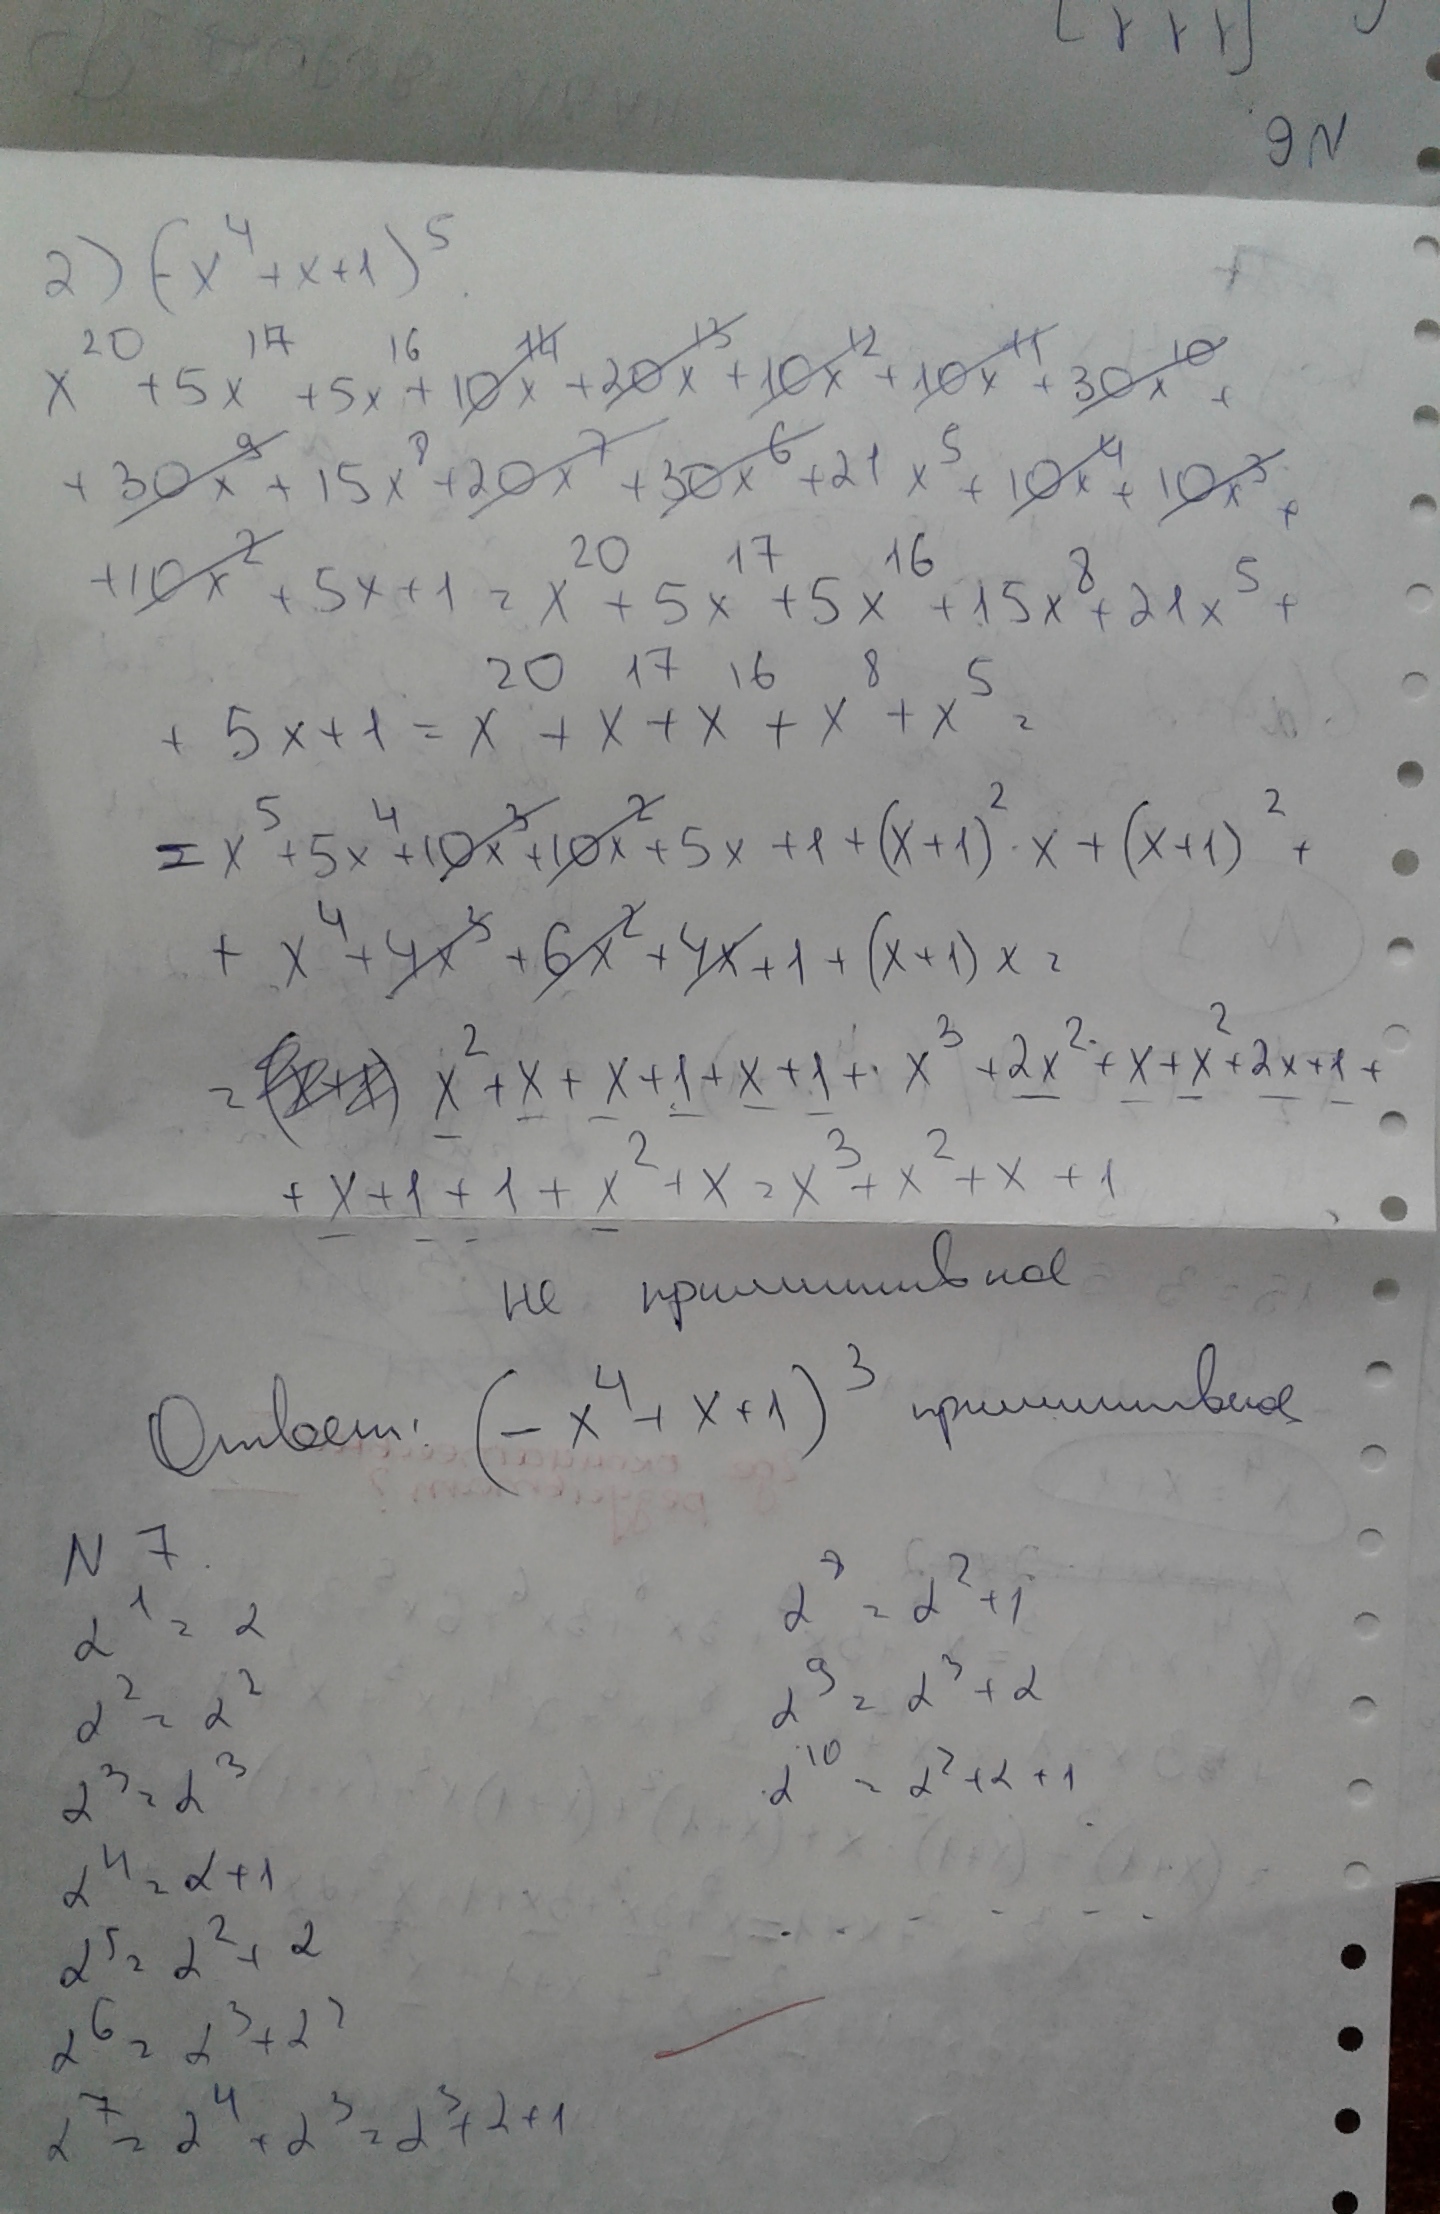 N6
2) (-x⁴+x+1)⁵
x²⁰+5x¹⁷+5x¹⁶+10x¹⁴+20x¹³+10x¹²+10x¹¹+30x¹⁰+
+30x⁹+15x⁸+20x⁷+30x⁶+21x⁵+10x⁴+10x³+
+10x²+5x+1=x²⁰+5x¹⁷+5x¹⁶+15x⁸+21x⁵+
+5x+1=x²⁰+x¹⁷+x¹⁶+x⁸+x⁵=
=x⁵+5x⁴+10x³+10x²+5x+1+(x+1)²·x+(x+1)²+
+x⁴+4x³+6x²+4x+1+(x+1)x=
= x²+x+x+1+x+1+x³+2x²+x+x²+2x+1+
+x+1+1+x²+x=x³+x²+x+1
не примитивное
Ответ: (-x⁴+x+1)³ примитивное
N 7.
α¹=α
α²=α²
α³=α³
α⁴=α+1
α⁵=α²+α
α⁶=α³+α²
α⁷=α⁴+α³=α³+α+1
α⁸=α²+1
α⁹=α³+α
α¹⁰=α²+α+1